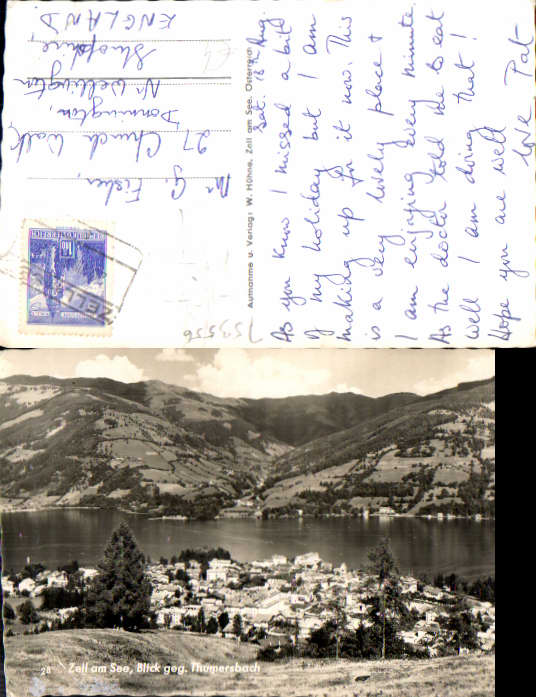 Sat. 18th Aug.
As you know I missed a bit
of my holiday but I am
making up for it now. This
is a very lovely place &
I am enjoying every minute.
As the doctor told me to eat
well I am doing that!
Hope you are well
Love Pat
Aufnahme u. Verlag: W. Höhne, Zell am See, Österreich
Mr G. Fisher,
27 Church Walk,
Donnington,
Nr Wellington
Shropshire,
ENGLAND.
ZELL
759556
28 Zell am See, Blick geg. Thumersbach